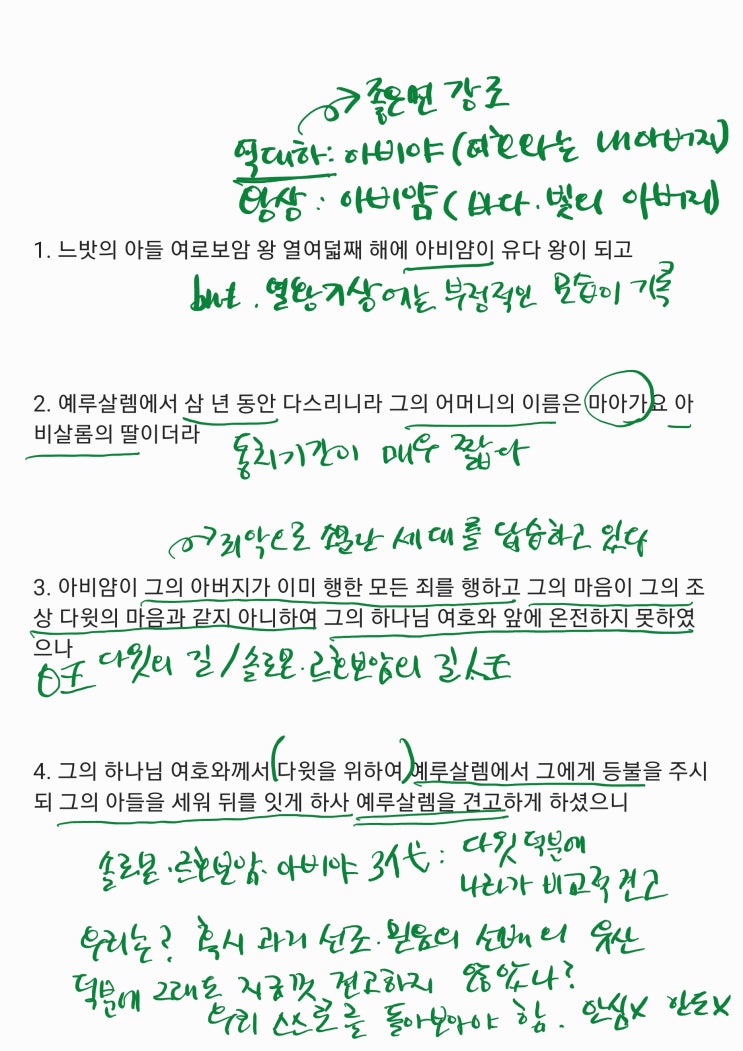 좋은면 강조
역대하: 아비야 (여호와는 내아버지)
왕상: 아비얌 ( 바다·빛의 아버지)
1. 느밧의 아들 여로보암 왕 열여덟째 해에 아비얌이 유다 왕이 되고
but. 열왕기상에는 부정적인 모습이 기록
2. 예루살렘에서 삼 년 동안 다스리니라 그의 어머니의 이름은 마아가요 아
비살롬의 딸이더라
통치기간이 매우 짧다
죄악으로 소문난 세대를 답습하고 있다
3. 아비얌이 그의 아버지가 이미 행한 모든 죄를 행하고 그의 마음이 그의 조
상 다윗의 마음과 같지 아니하여 그의 하나님 여호와 앞에 온전하지 못하였
으나
다윗의 길/솔로몬·르호보암의 길
4. 그의 하나님 여호와께서 (다윗을 위하여) 예루살렘에서 그에게 등불을 주시
되 그의 아들을 세워 뒤를 잇게 하사 예루살렘을 견고하게 하셨으니
솔로몬·르호보암·아비야 3代: 다윗 덕분에
나라가 비교적 견고
우리는? 혹시 과거 선조·믿음의 선배의 유산
덕분에 그래도 지금껏 견고하지 않았나?
우리 스스로를 돌아보아야 함. 안심x 안도x